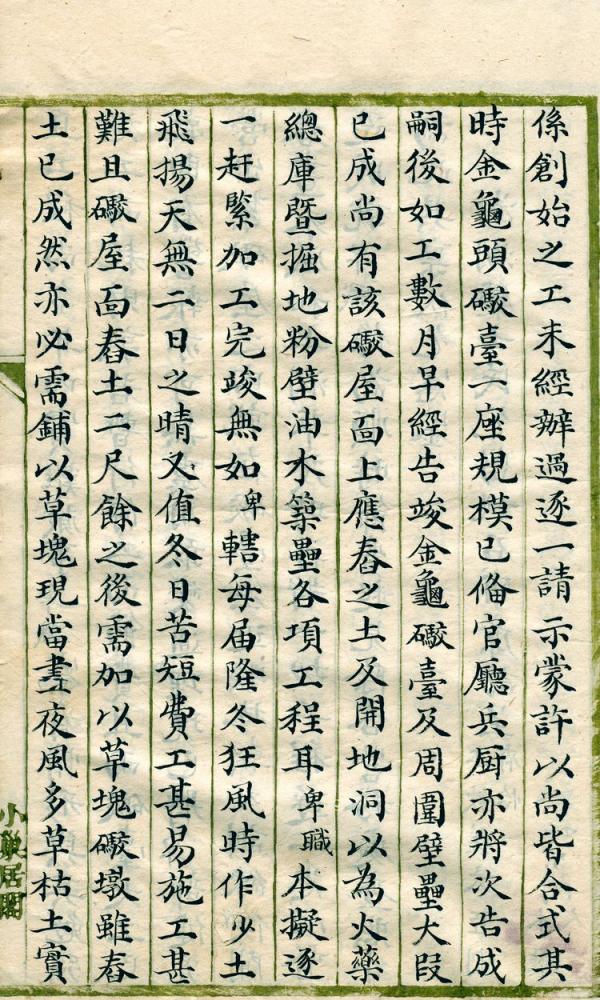 係創始之工未經辦過逐一請示蒙許以尚皆合式其
時金龜頭礮臺一座規模已偹官廳兵厨亦將次告成
嗣後如工數月早經告竣金龜礮臺及周圍壁壘大段
已成尚有該礮屋面上應舂之土及開地洞以為火藥
總庫暨掘地粉壁油木築壘各項工程耳卑職本擬逐
一赶緊加工完竣無如卑轄每届隆冬狂風時作少土
飛揚天無二日之晴又值冬日苦短費工甚易施工甚
難且礮屋面舂土二尺餘之後需加以草塊礮墩雖舂
土已成然亦必需鋪以草塊現當晝夜風多草枯土實